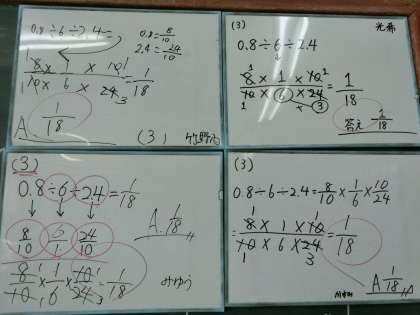 0.8÷6÷2.4=
0.8=8/10
2.4=24/10
8×1×10/10×6×24=1/18
1 1 1 3
A. 1/18
(3)
(3)
0.8÷6÷2.4
8×1×10/10×6×24
1 1 1 3
1/18
答え 1/18
(3)
0.8÷6÷2.4=1/18
8/10 6/1 24/10
A. 1/18
8/10×1/6×10/24=1/18
1 1 1 3
みゆう
(3)
0.8÷6÷2.4=8/10×1/6×10/24
=8×1×10/10×6×24=1/18
1 1 1 3
A 1/18